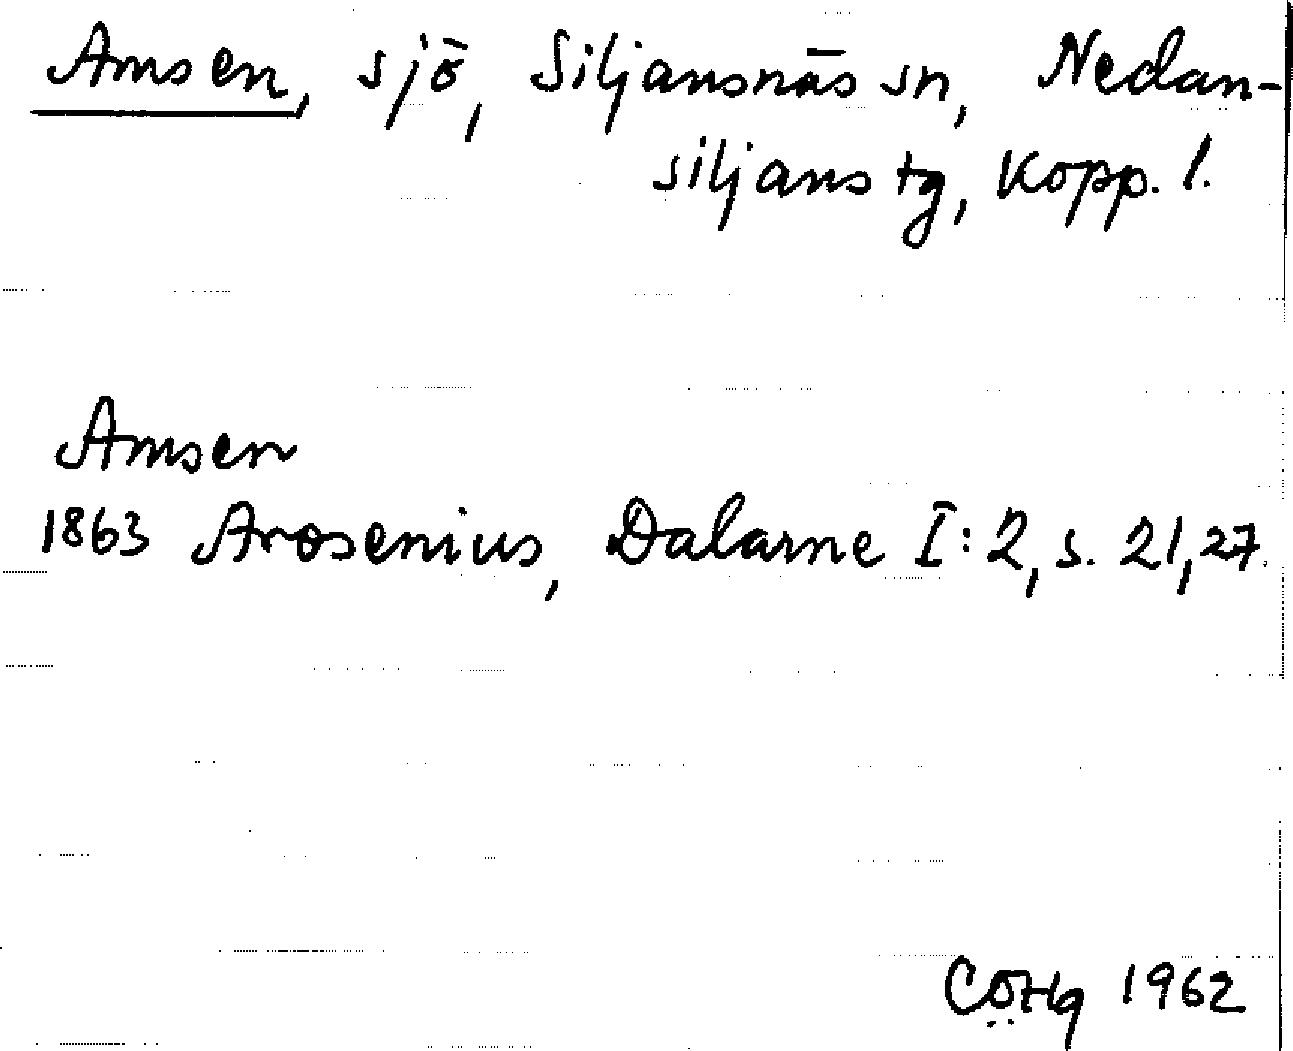 Amsen, sjö, Siljansnäs sn, Nedan-
siljans tg, Kopp. l.
Amsen
1863 Arosenius, Dalarne I:2, s. 21,27.
1962